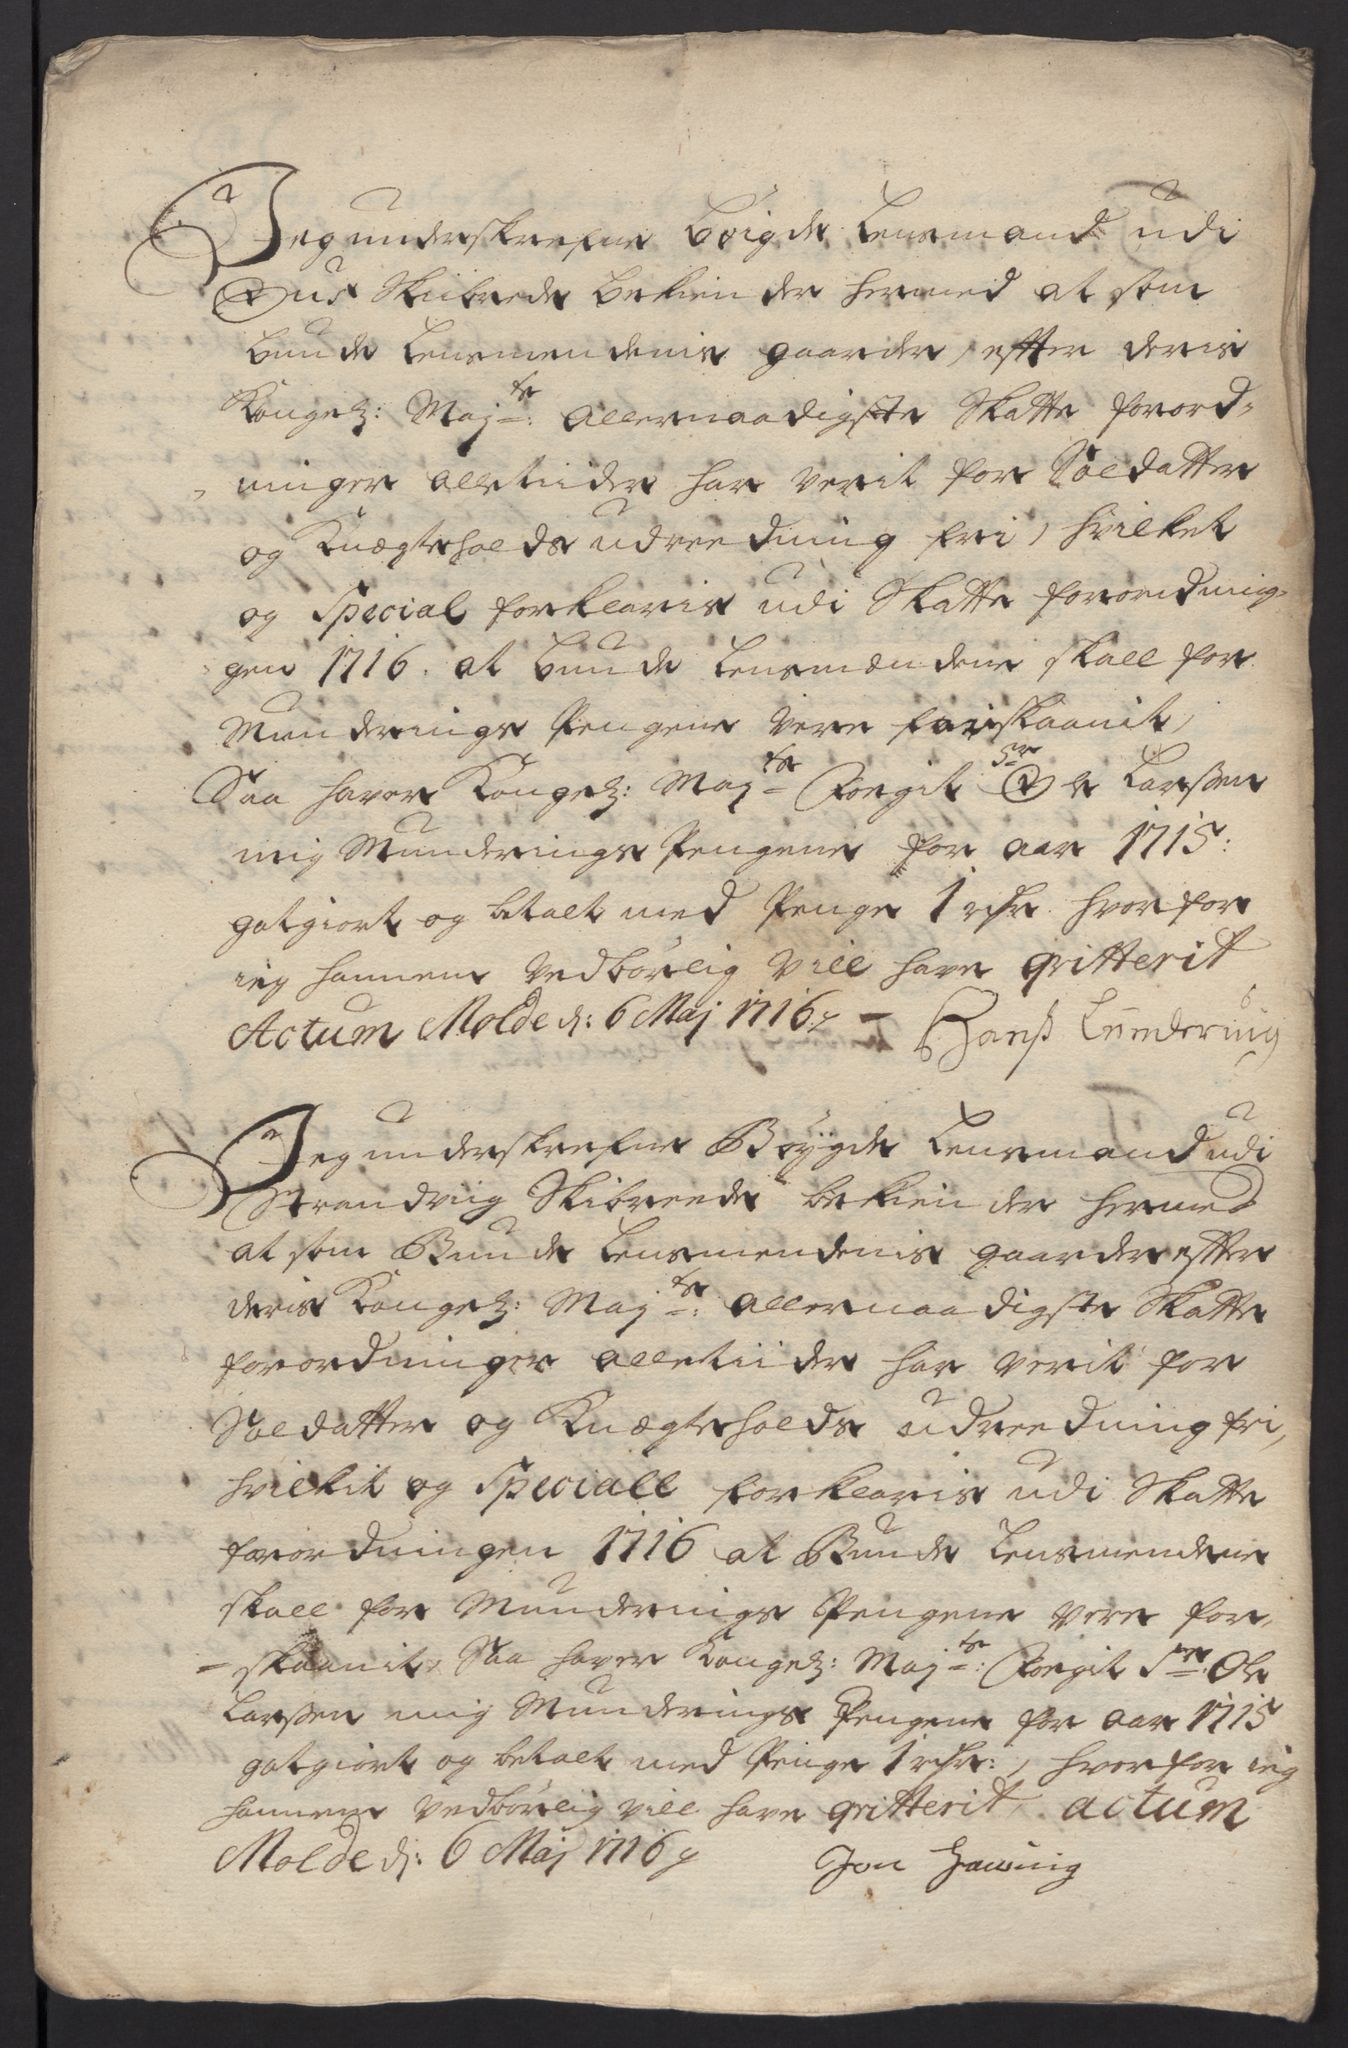 Jeg underskrefne bøigde Lensmand udi
Ous Skibrede bekiender hermed at som
bunde Lensmendenis gaarder, efftter deris
Kongel: Maj:ts allernaadigste Skatte forord-
ninger alletiider har verit for Soldatter
og Knægteholds udreedning fri, hvilket
og Special forklaris udi Skatte forordning-
gen 1716. at bunde Lensmændene skall for
Munderings Pengene vere forskaanit,
Saa haver Kongel: Maj:ts Foegit Sr. Ole Larssen
mig Munderings Pengene for aar 1715:
gotgiort og betalt med Penge 1 rdr. hvorfor
ieg hannem vedbørlig vill have qvitterit
Actum Molde d: 6 Maj 1716
Hanss Lundering
Jeg underskrefne Bøygde Lensmand udi
Strandviig Skibreede bekiender hermed
at som Bunde Lensmendenis gaarder effter
deris Kongel: Maj:ts allernaadigste Skatte
forordninger alletiider har verit for
Soldatter og Knægteholds udreedning fri,
hvilkit og Speciall forklaris udi Skatte
forordningen 1716 at Bunde Lensmendene
skall for Munderings Pengene vere for-
skaanit, Saa haver Kongel: Maj:ts Foegit Sr. Ole
Larssen mig Munderings Pengene for aar 1715
gotgiort og betalt med Penge 1 rdr:, hvorfor ieg
hannem vedbørlig vill have qvitterit, actum
Molde d: 6 Maj 1716
Jon